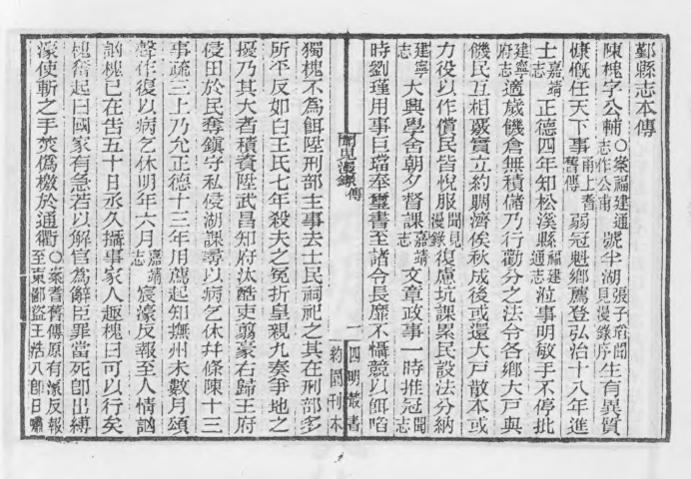 鄞縣志本傳
陳槐字公輔○案福建通志作公甫號半湖張子瑄聞見漫錄序生有異質
慷慨任天下事甬上耆舊傳弱冠魁鄉薦登弘治十八年進
士嘉靖志正德四年知松溪縣福建通志涖事明敏手不停批
建寧府志適歲饑倉無積儲乃行勸分之法令各鄉大戶與
饑民互相覈實立約賙濟俟秋成後或還大戶散本或
力役以作償民皆悅服聞見漫錄復慮坑課累民設法分納
建寧志大興學舍朝夕督課嘉靖志文章政事一時推冠聞志
時劉瑾用事巨璫奉璽書至諸令長靡不懾競以餌啗
聞見漫錄 傳 一 四明叢書
約園刊本
獨槐不為餌陞刑部主事去士民祠祀之其在刑部多
所平反如白王氏七年殺夫之冤折皇親九奏爭地之
擾乃其大者積資陞武昌知府汰酷吏翦豪右歸王府
侵田於民奪鎮守私侵湖課尋以病乞休幷條陳十三
事疏三上乃允正德十三年用薦起知撫州未數月頌
聲作復以病乞休明年六月嘉靖志宸濠反報至人情訩
訩槐已在告五十日丞久攝事家人趣槐曰可以行矣
槐奮起曰國家有急若以解官為辭臣罪當死卽出縛
濠使斬之手焚僞檄於通衢○案耆舊傳原有濠反報至東鄉盜王浩八卽日嘯